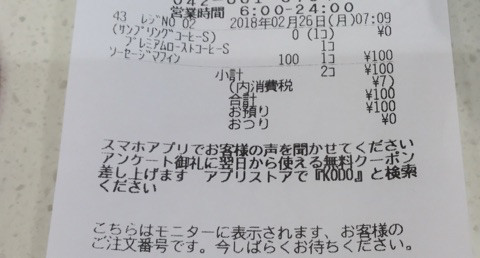 営業時間 6:00-24:00
43 レジNO 02 2018年02月26日(月)07:09
(サンプリングコーヒーS) 0 (1コ) ¥0
プレミアムローストコーヒーS 1コ
ソーセージマフィン 100 1コ ¥100
小計 2コ ¥100
(内消費税 ¥7)
合計 ¥100
お預り ¥100
おつり ¥0
スマホアプリでお客様の声を聞かせてください
アンケート御礼に翌日から使える無料クーポン
差し上げます アプリストアで『KODO』と検索
ください
こちらはモニターに表示されます、お客様の
ご注文番号です。今しばらくお待ちください。